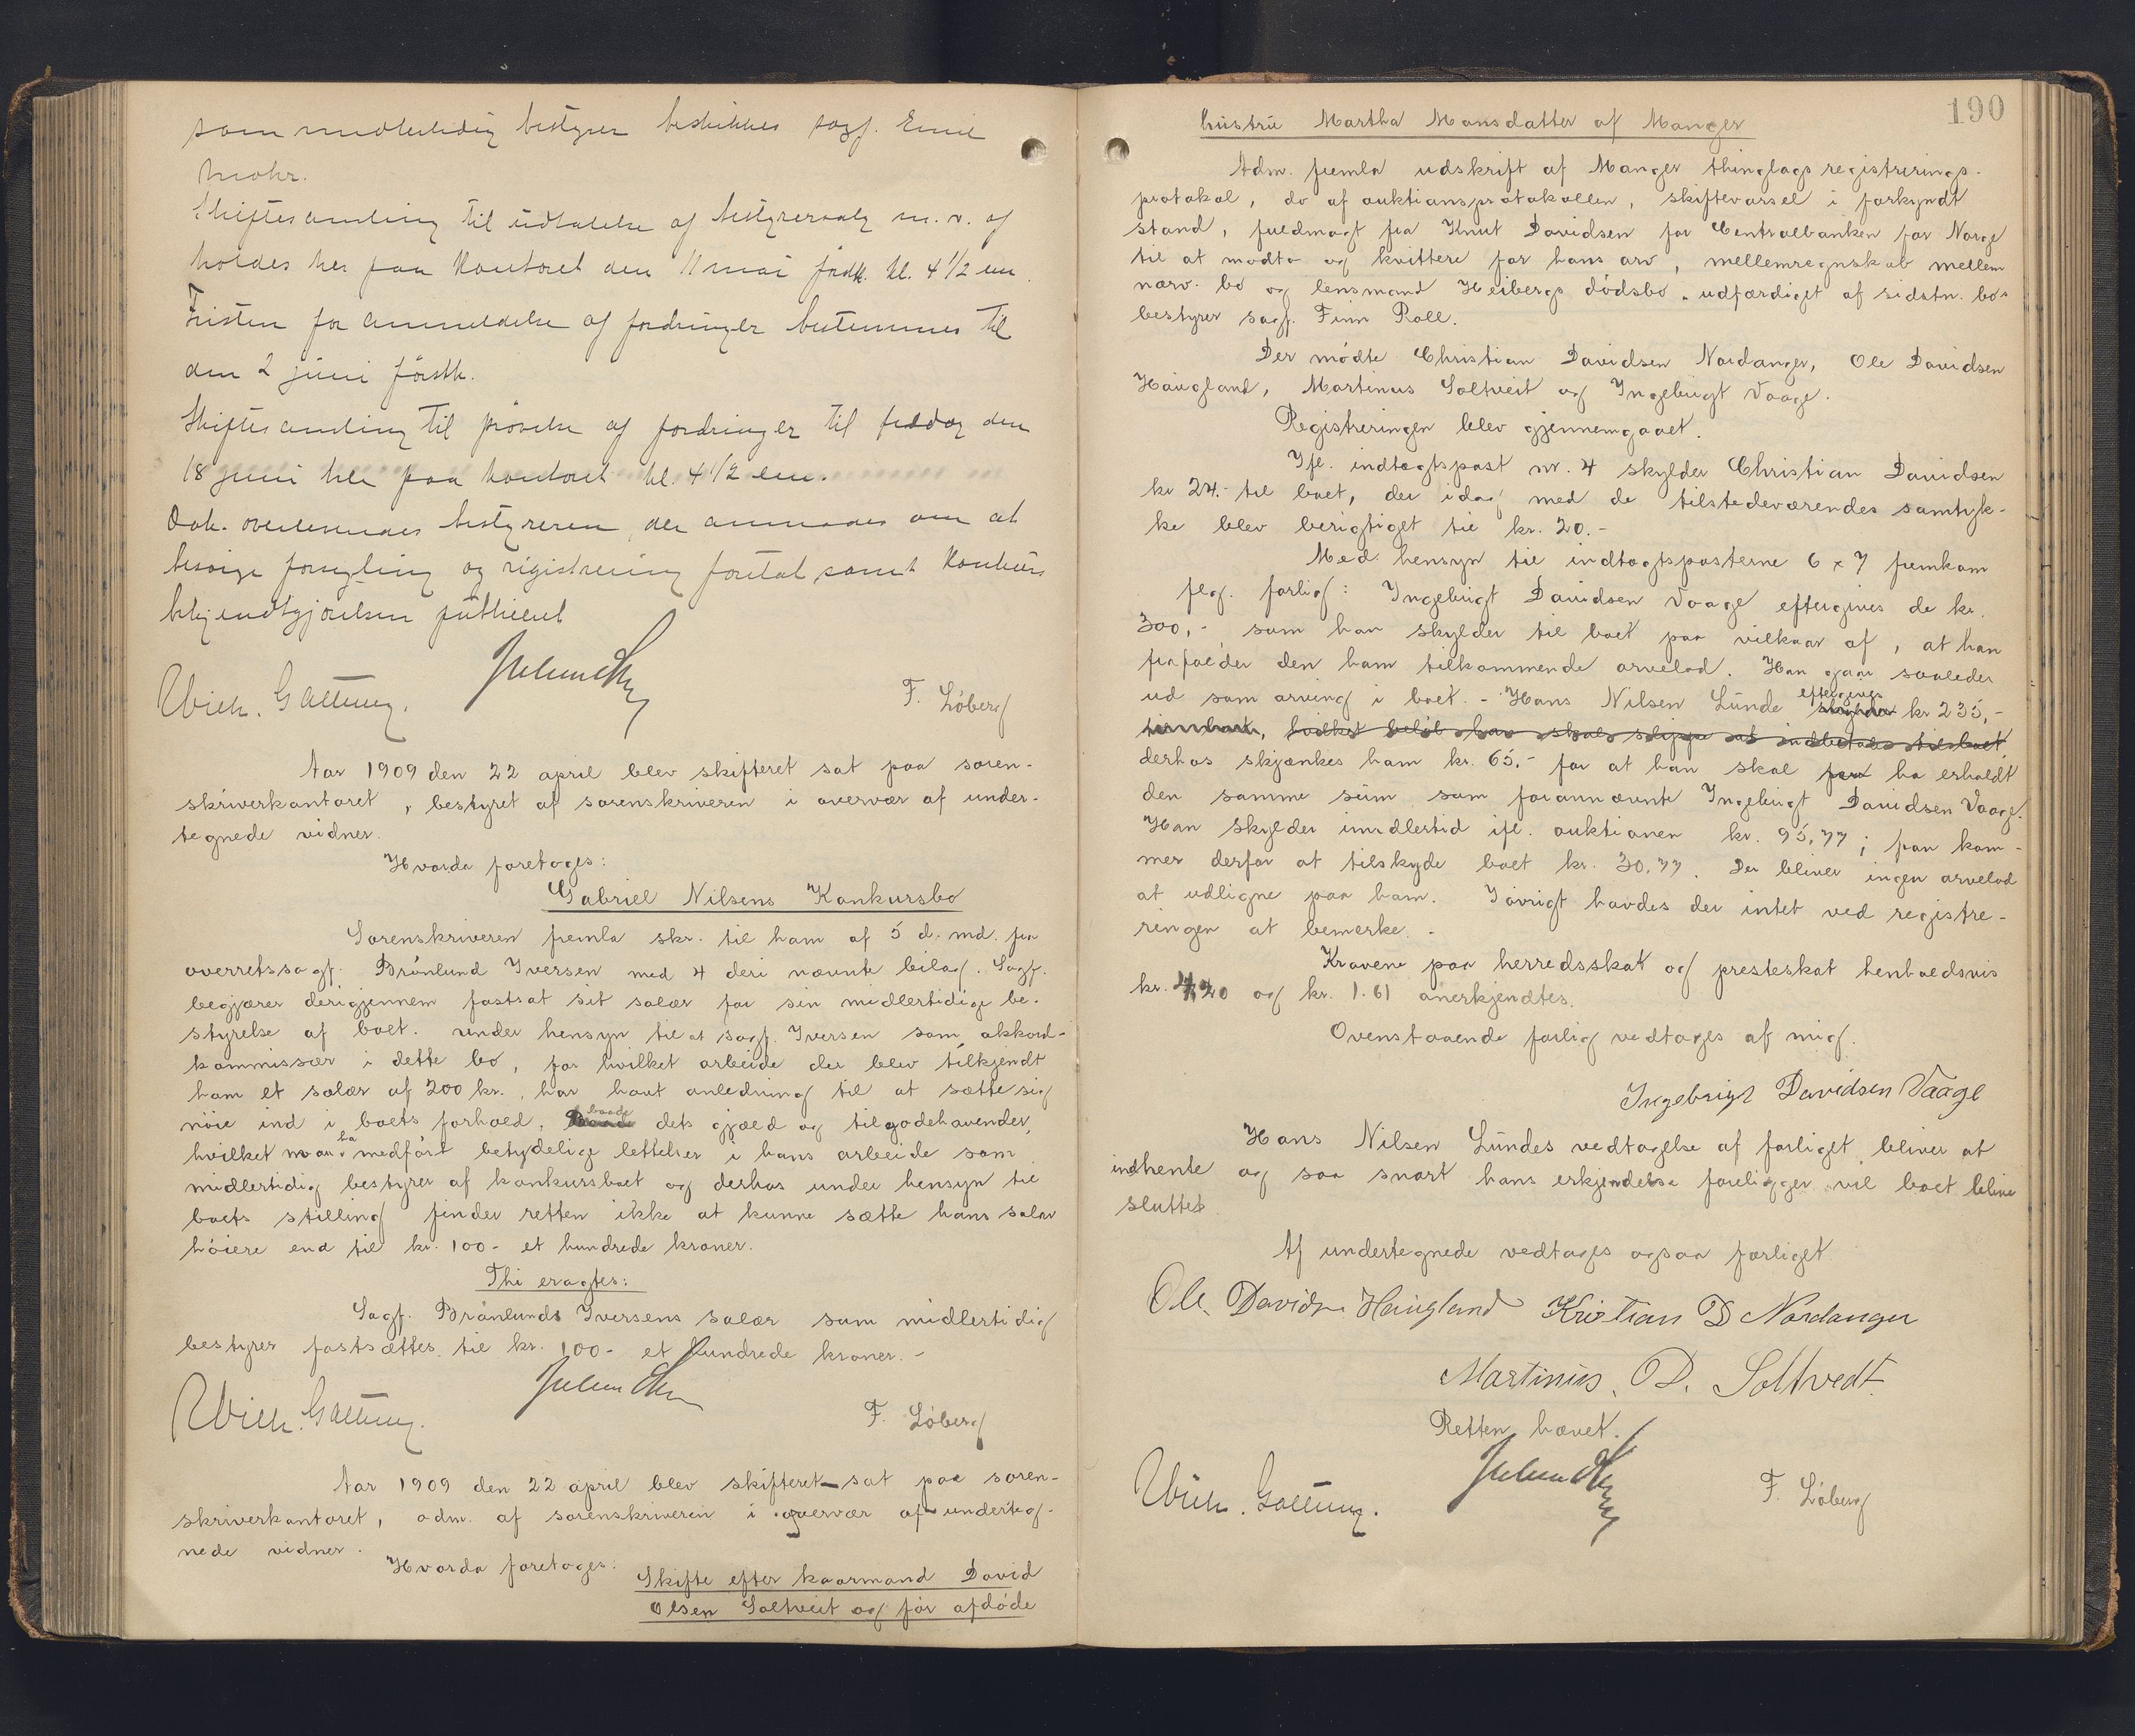 som midlertidig bestyrer beskikkes sagf. Emil
Mohr.
Skiftesamling til udtalelse af bestyrervalg m. v. af
holdes her paa kontoret den 11 mai førstk. kl. 4 1/2 em.
Fristen for anmeldelse af fordringer bestemmes til
den 2 juni førstk.
Skiftesamling til prøvelse af fordringer til fredag den
18 juni her paa kontoret kl. 4 1/2 em.
Dok. oversendes bestyreren, der anmodes om at
besørge forsegling og registrering foretat samt konkurs
bekjendtgjørelsen publiceret
Wilh. Galtung. F. Løberg
Aar 1909 den 22 april blev skifteret sat paa soren-
skriverkontoret, bestyret af sorenskriveren i overvær af under-
tegnede vidner.
Hvorda foretoges:
Gabriel Nilsens Konkursbo
Sorenskriveren fremla skr. til ham af 5 d. md. fra
overretssagf. Brønlund Iversen med 4 deri nævnte bilag. Sagf.
begjærer derigjennem fastsat sit salær for sin midlertidige be-
styrelse af boet. Under hensyn til at sagf. Iversen som akkord-
kommissær i dette bo, for hvilket arbeide der blev tilkjendt
ham et salær af 200 kr., har havt anledning til at sætte sig
nøie ind i boets forhold, baade dets gjæld og tilgodehavender,
hvilket maa ha medført betydelige lettelser i hans arbeide som
midlertidig bestyrer af konkursboet og derhos under hensyn til
boets stilling finder retten ikke at kunne sætte hans salær
høiere end til kr. 100.- et hundrede kroner.
Thi eragtes:
Sagf. Brønlunds Iversens salær som midlertidig
bestyrer fastsættes til kr. 100- et hundrede kroner.-
Wilh. Galtung. F. Løberg
Aar 1909 den 22 april blev skifteret sat paa soren-
skriverkontoret, adm. af sorenskriveren i overvær af underteg-
nede vidner.
Hvorda foretoges:
Skifte efter kaarmand David
Olsen Soltveit og før afdøde
190
hustru Martha Monsdatter af Manger
Adm. fremla udskrift af Manger thinglags registrerings-
protokol, do af auktionsprotokollen, skiftevarsel i forkyndt
stand, fuldmagt fra Knut Davidsen for Centralbanken for Norge
til at modta og kvittere for hans arv, mellemregnskab mellem
nærv. bo og lensmand Heibergs dødsbo, udfærdiget af sidstn. bo's
bestyrer sagf. Finn Roll.
Der mødte Christian Davidsen Nordanger, Ole Davidsen
Haugland, Martinus Soltveit og Ingebrigt Vaage.
Registreringen blev gjennemgaaet.
Ifl. indtægtspost nr. 4 skylder Christian Davidsen
kr 24.- til boet, der idag med de tilstedeværendes samtyk-
ke blev berigtiget til kr. 20.-
Med hensyn til indtægtsposterne 6 x 7 fremkom
flg. forlig: Ingebrigt Davidsen Vaage eftergives de kr.
300,- som han skylder til boet paa vilkaar af, at han
frafalder den ham tilkommende arvelod. Han gaar saaledes
ud som arving i boet. - Hans Nilsen Lunde eftergives kr 235,-
hvilket beløb han skal slippe at indbetale til boet
derhos skjænkes ham kr. 65.- for at han skal ha erholdt
den samme sum som forannævnte Ingebrigt Davidsen Vaage.
Han skylder imidlertid ifl. auktionen kr. 95,77; han kom-
mer derfor at tilskyde boet kr. 30,77. Der bliver ingen arvelod
at udligne paa ham. Iøvrigt havdes der intet ved registre-
ringen at bemerke. -
Kravene paa herredsskat og presteskat henholdsvis
kr. 4,20 og kr. 1.61 anerkjendtes.
Ovenstaaende forlig vedtages af mig.
Ingebrigt Davidsen Vaage
Hans Nilsen Lundes vedtagelse af forliget bliver at
indhente og saa snart hans erkjendelse foreligger vil boet blive
sluttet
Af undertegnede vedtages ogsaa forliget.
Ole Davidsen Haugland Kristian D Nordanger
Martinus. D. Soltvedt.
Retten hævet.
Wilh. Galtung. F. Løberg